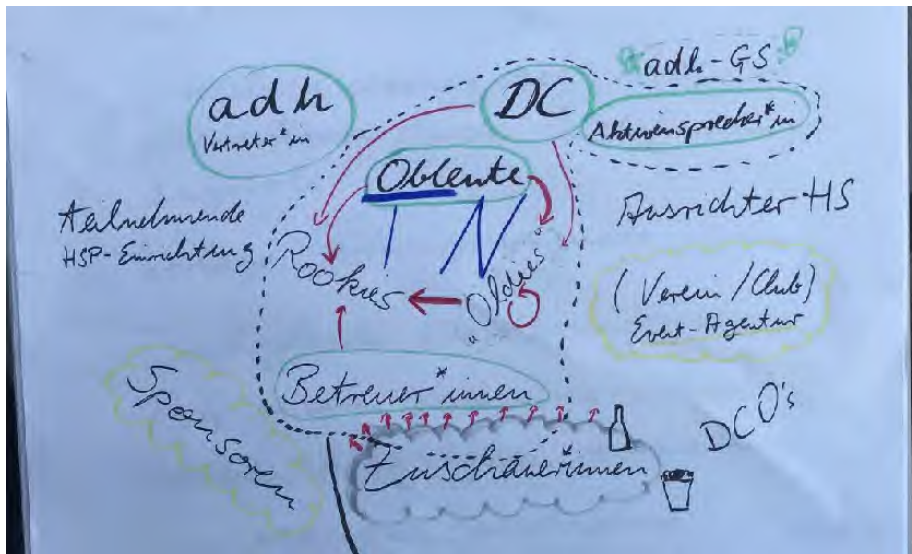 adh-GS
adh
Vertreter*in
DC
Aktivensprecher*in
Obleute
Teilnehmende
HSP-Einrichtung
Ausrichter HS
Rookies
"Oldies"
(Verein/Club)
Event-Agentur
Betreuer*innen
Sponsoren
DCO's
Zuschauer*innen